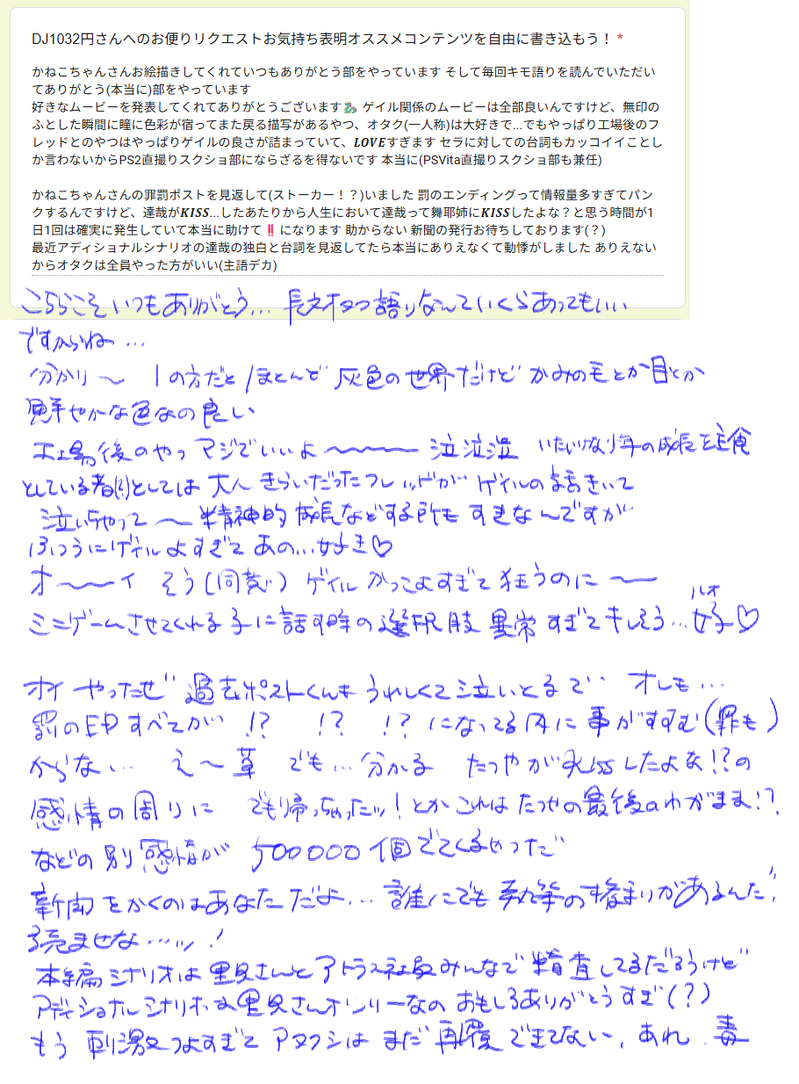 DJ1032円さんへのお便りリクエストお気持ち表明オススメコンテンツを自由に書き込もう！ *
かねこちゃんさんお絵描きしてくれていつもありがとう部をやっています そして毎回キモ語りを読んでいただい
てありがとう(本当に)部をやっています
好きなムービーを発表してくれてありがとうございます🐍 ゲイル関係のムービーは全部良いんですけど、無印の
ふとした瞬間に瞳に色彩が宿ってまた戻る描写があるやつ、オタク(一人称)は大好きで...でもやっぱり工場後のフ
レッドとのやつはやっぱりゲイルの良さが詰まっていて、LOVEすぎます セラに対しての台詞もカッコイイことし
か言わないからPS2直撮りスクショ部にならざるを得ないです 本当に(PSVita直撮りスクショ部も兼任)
かねこちゃんさんの罪罰ポストを見返して(ストーカー！？)いました 罰のエンディングって情報量多すぎてパン
クするんですけど、達哉がKISS...したあたりから人生において達哉って舞耶姉にKISSしたよな？と思う時間が1
日1回は確実に発生していて本当に助けて‼️になります 助からない 新聞の発行お待ちしております(？)
最近アディショナルシナリオの達哉の独白と台詞を見返してたら本当にありえなくて動悸がしました ありえない
からオタクは全員やった方がいい(主語デカ)
こちらこそいつもありがとう... 長文オタク語りなんていくらあってもいい
ですからね...
分かり〜 1の方だとほとんど灰色の世界だけど かみの毛とか目とか
鮮やかな色なの良い
工場後のやつ マジでいいよ〜〜〜 泣泣泣 いたいけな少年の成長を主食
としている者としては 大人きらいだったフレッドが ゲイルの話きいて
泣いちゃって〜 精神的成長などする所もすきなんですが
ふつうにゲイルよすぎて あの...好き♡
オ〜〜イ そう(同意) ゲイルかっこよすぎて狂うのに〜
ミニゲームさせてくれる子に話す時の選択肢 異常すぎてキレそう... 好♡
オイ やったぜ 過去ポストくんも うれしくて泣いとるで オレも...
罰のED すべてが !? !? !? になってる内に 事がすすむ(罪も)
からない... え〜草 でも...分かる たつやがKissしたよな!?の
感情の周りに でも帰っちゃったッ! とか これはたつやの最後のわがまま!?
などの別感情が 500000個でてくるやつだ
新聞をかくのはあなただよ... 誰にでも執筆の権利があるんだ!
読ませな...ッ!
本編シナリオは里見さんとアトラス社員みんなで精査してるだろうけど
アディショナルシナリオは里見さんオンリーなの おもしろありがとうすぎ(?)
もう 刺激つよすぎて アタクシは まだ再履できてない, あれ 毒